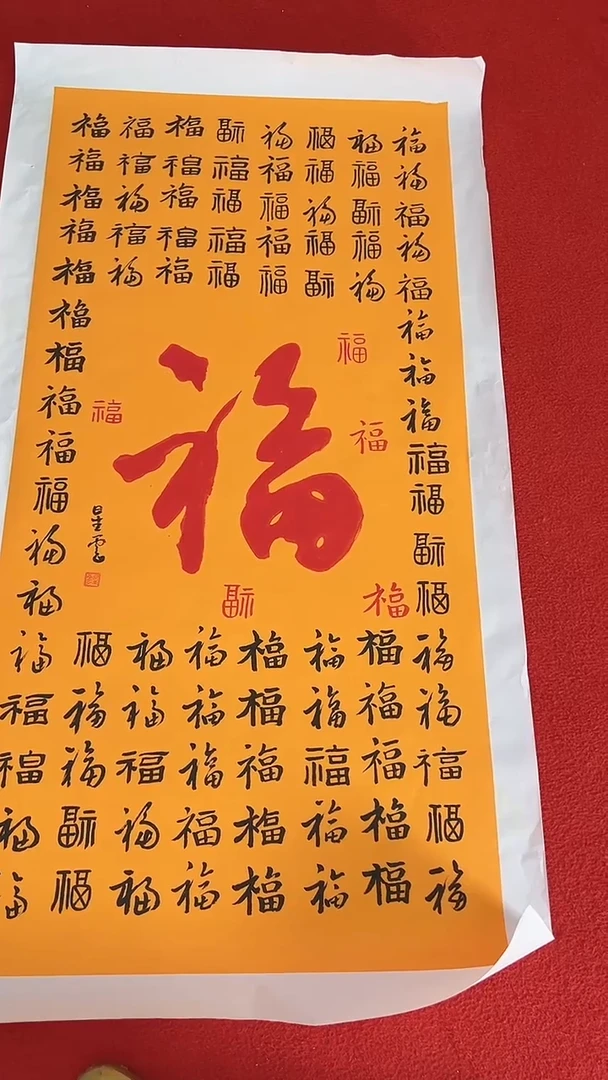 福福福福福福福福
福福福福福福福福
福福福福福福福福
福福福福福福福福
福福福福福福福福
福 福
福 福 福
福 福 福
福 福 福 福
福 福
福 星雲 福
福 福 福 福
福福福福福福福福
福福福福福福福福
福福福福福福福福
福福福福福福福福
福福福福福福福福